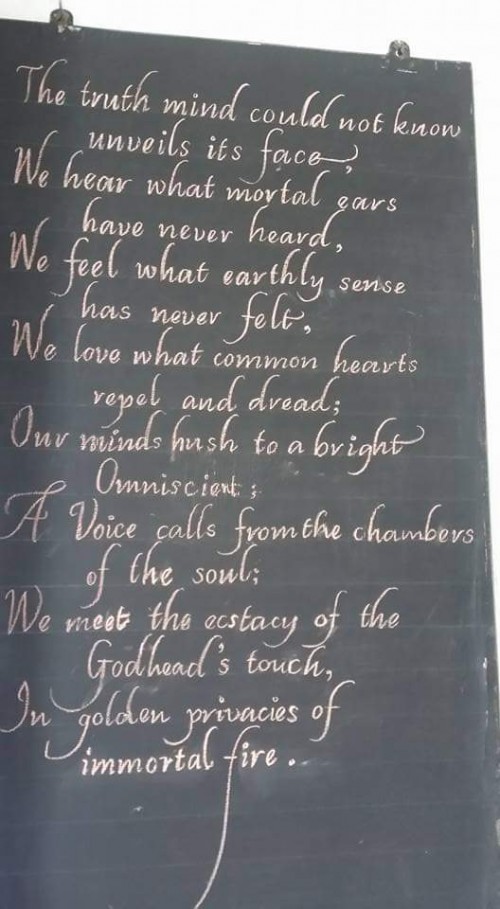 The truth mind could not know
unveils its face,
We hear what mortal ears
have never heard,
We feel what earthly sense
has never felt,
We love what common hearts
repel and dread;
Our minds hush to a bright
Omniscient;
A Voice calls from the chambers
of the soul;
We meet the ecstacy of the
Godhead's touch,
In golden privacies of
immortal fire.